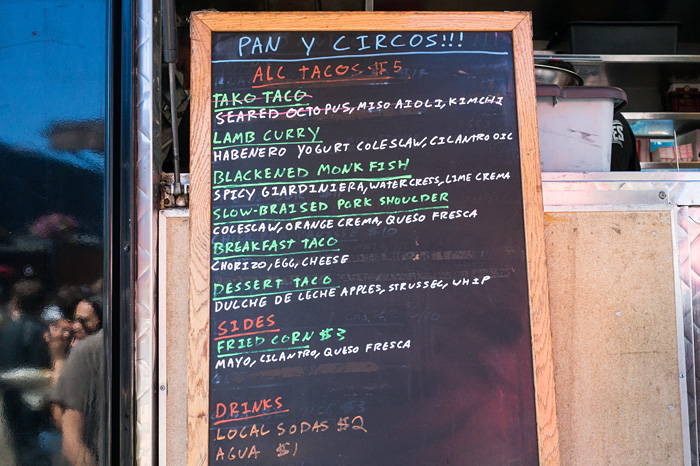 PAN Y CIRCOS!!!
ALL TACOS $5
TAKO TACO
SEARED OCTOPUS, MISO AIOLI, KIMCHI
LAMB CURRY
HABENERO YOGURT COLESLAW, CILANTRO OIL
BLACKENED MONK FISH
SPICY GIARDINIERA, WATERCRESS, LIME CREMA
SLOW-BRAISED PORK SHOULDER
COLESLAW, ORANGE CREMA, QUESO FRESCA
BREAKFAST TACO
CHORIZO, EGG, CHEESE
DESSERT TACO
DULCHE DE LECHE APPLES, STRUSSEL, WHIP
SIDES
FRIED CORN $3
MAYO, CILANTRO, QUESO FRESCA
DRINKS
LOCAL SODAS $2
AGUA $1